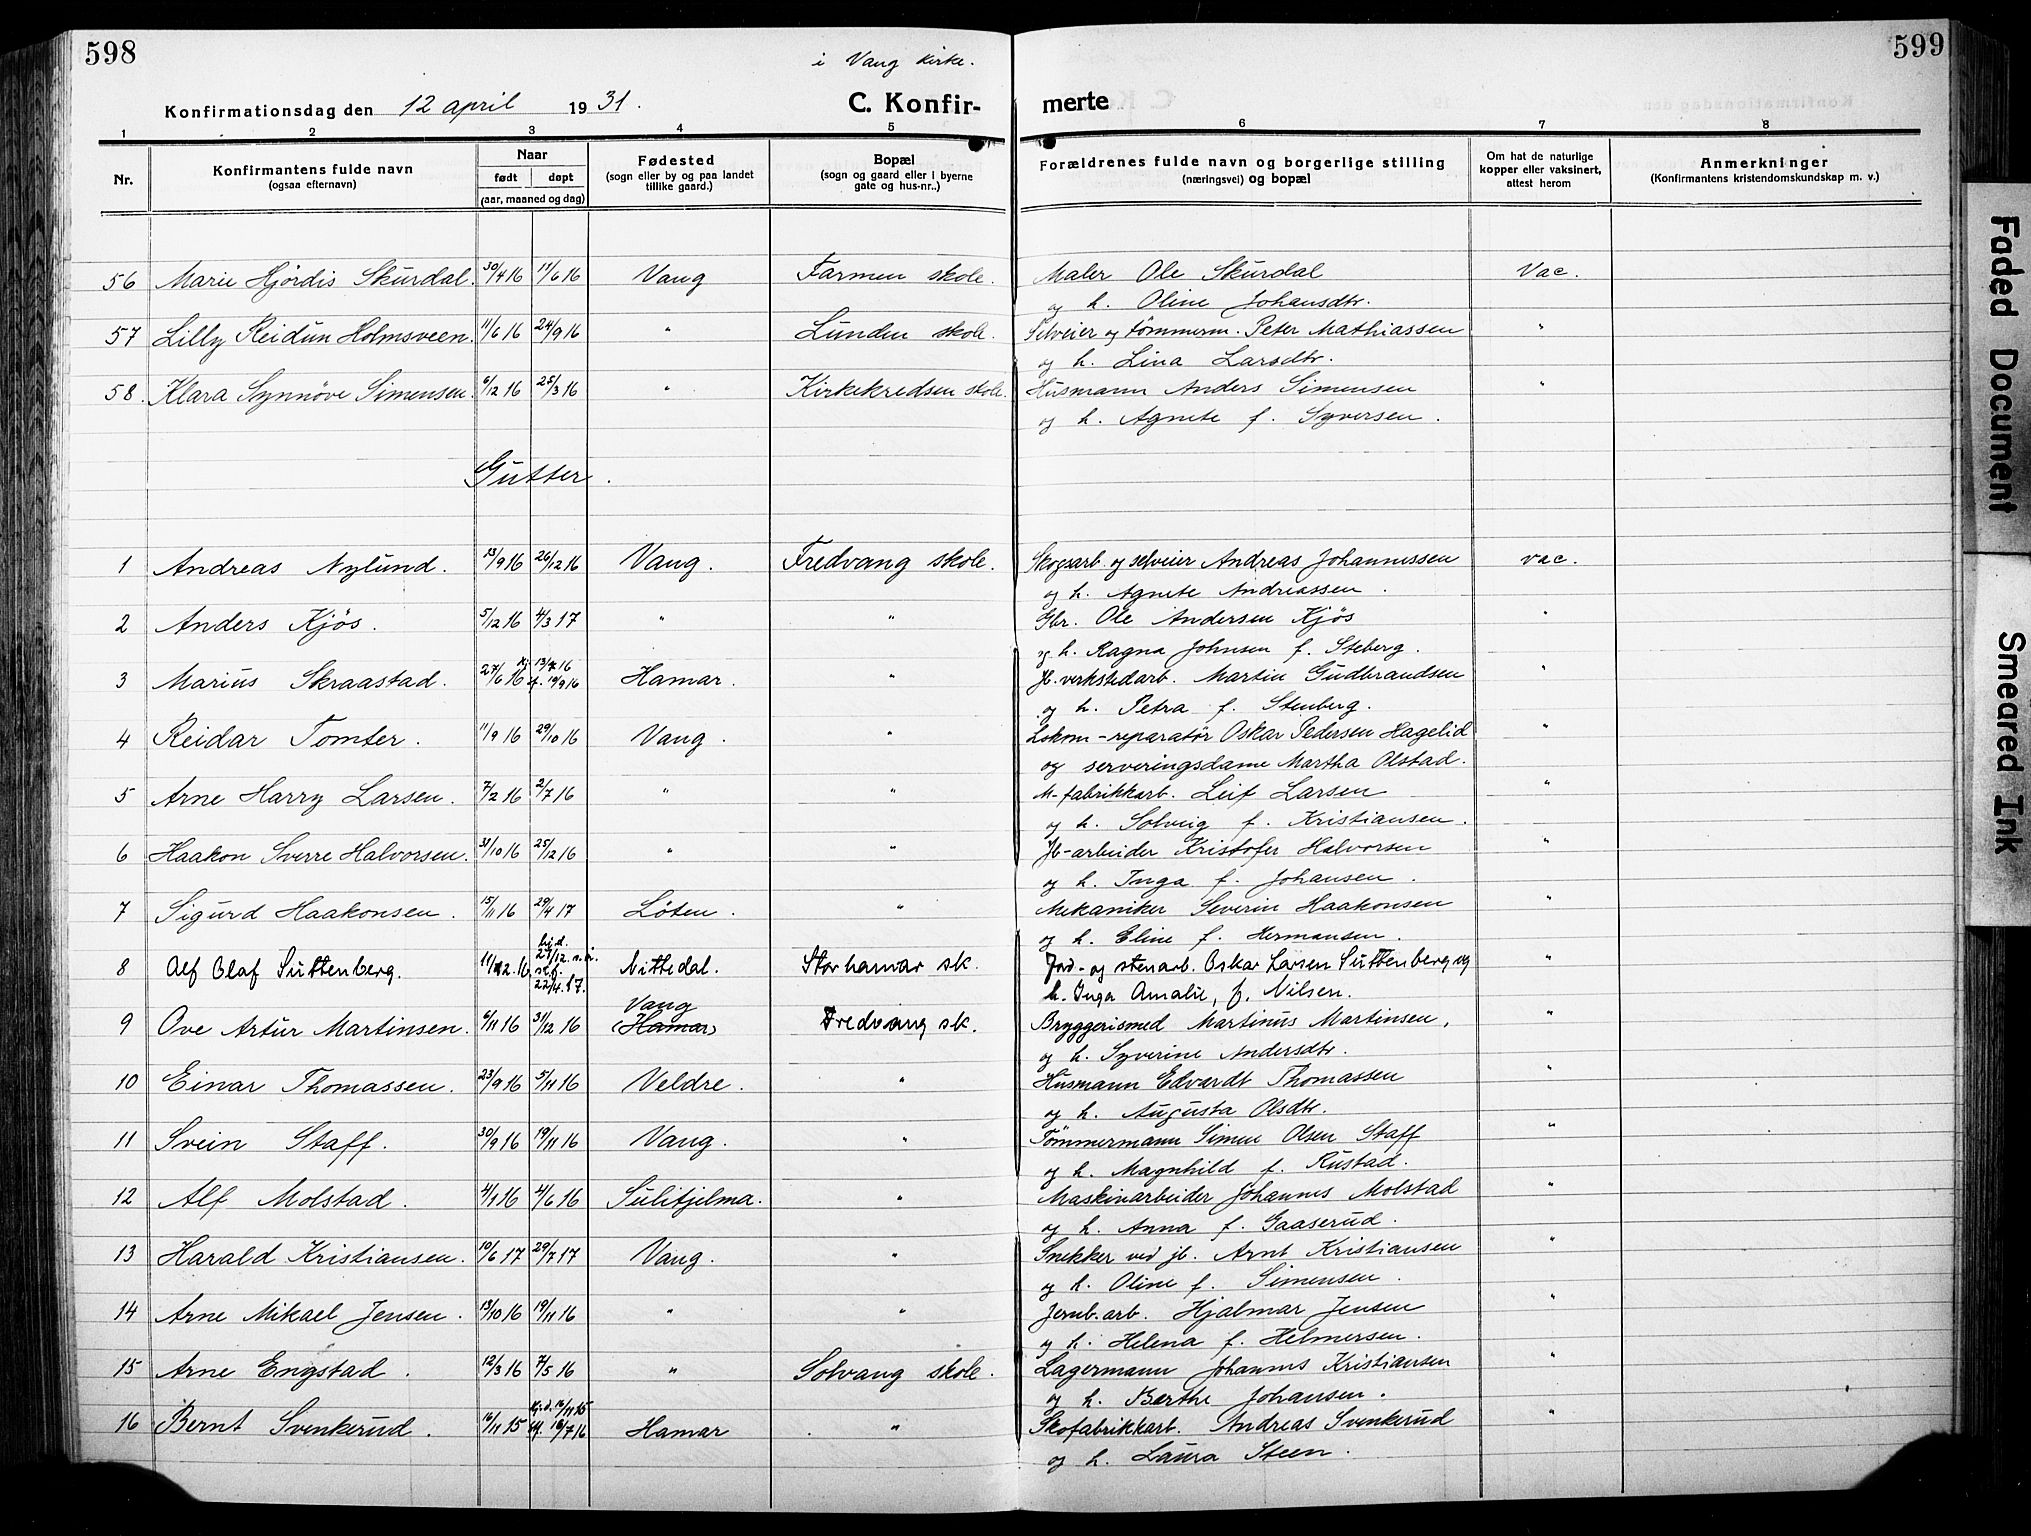 598
599
i Vang kirke.
Konfirmationsdag den 12 april 1931.
C. Konfir-
merte
1 2 3 4 5 6 7 8
Nr.
Konfirmantens fulde navn
(ogsaa efternavn)
Naar
født døpt
(aar, maaned og dag)
Fødested
(sogn eller by og paa landet
tillike gaard.)
Bopæl
(sogn og gaard eller i byerne
gate og hus-nr..)
Forældrenes fulde navn og borgerlige stilling
(næringsvei) og bopæl
Om hat de naturlige
kopper eller vaksinert,
attest herom
Anmerkninger
(Konfirmantens kristendomskundskap m. v.)
56 Marie Hjördis Skurdal. 30/4 16 11/6 16 Vang Farmen skole. Maler Ole Skurdal Vac.
og h. Oline Johansdtr.
57 Lilly Reidun Holmsveen. 11/6 16 24/9 16 " Lunden skole. Selveier og tømmerm. Peter Mathiassen "
og h. Lina Larsdtr.
58. Klara Synnöve Simensen. 6/12 16 25/3 16 " Kirkekredsen skole. Husmann Anders Simensen "
og h. Agnete f. Syversen.
Gutter.
1 Andreas Nylund. 13/9 16 26/12 16 Vang. Fredvang skole. Skogsarb. og selveier Andreas Johannessen vac.
og h. Agnete Andreassen.
2 Anders Kjös. 5/12 16 4/3 17 " " Gbr. Ole Andersen Kjös "
og h. Ragna Johnsen f. Steberg.
3 Marius Skraastad. 27/6 16 13/7 16 19/9 16 Hamar. " Jb.verkstedarb. Martin Gudbrandsen "
og h. Petra f. Stenberg.
4 Reidar Tomter. 11/9 16 29/10 16 Vang. " Lokom-reparatør Oskar Pedersen Hagelid "
og serveringsdame Martha Olstad.
5 Arne Harry Larsen. 7/2 16 2/7 16 " " M-fabrikkarb. Leif Larsen "
og h. Solveig f. Kristiansen.
6 Haakon Sverre Halvorsen. 31/10 16 25/12 16 " " Jb-arbeider Kristofer Halvorsen "
og h. Inga f. Johansen.
7 Sigurd Haakonsen. 15/11 16 29/4 17 Löten. " Mekaniker Severin Haakonsen "
og h. Eline f. Hermansen.
8 Alf Olaf Suttenberg. 11/12.16. hj.d. 27/12. st.f. 22/4.17. Nittedal. Storhamar sk. Jord- og stenarb. Oskar Larsen Suttenberg og "
h. Inga Amalie, f. Nilsen.
Vang
9 Ove Artur Martinsen. 6/11 16 31/12 16 (Hamar) Fredvang sk. Bryggerismed Martinus Martinsen, "
og h. Syverine Andersdtr.
10 Einar Thomassen. 23/9 16 5/11 16 Veldre. " Husmann Edvardt Thomassen "
og h. Augusta Olsdtr.
11 Svein Staff. 30/9 16 19/11 16 Vang. " Tömmermann Simen Olsen Staff "
og h. Magnhild f. Rustad.
12 Alf Molstad. 4/1 16 4/6 16 Sulitjelma. " Maskinarbeider Johannes Molstad "
og h. Anna f. Gaaserud.
13 Harald Kristiansen. 10/6 17 29/7 17 Vang. " Snekker ved jb. Arnt Kristiansen "
og h. Oline f. Simensen.
14 Arne Mikael Jensen. 13/10 16 19/11 16 " " Jernb.arb. Hjalmar Jensen "
og h. Helena f. Helmersen.
15 Arne Engstad. 12/3 16 7/5 16 " Solvang skole. Lagermann Johannes Kristiansen "
og h. Bærthe Johansen.
16 Bernt Svenkerud. 16/11 15 hj.d. 16/11 15 16/7 16 Hamar " Skofabrikkarb. Andreas Svenkerud "
og h. Laura Steen.
Faded Document
Smeared Ink